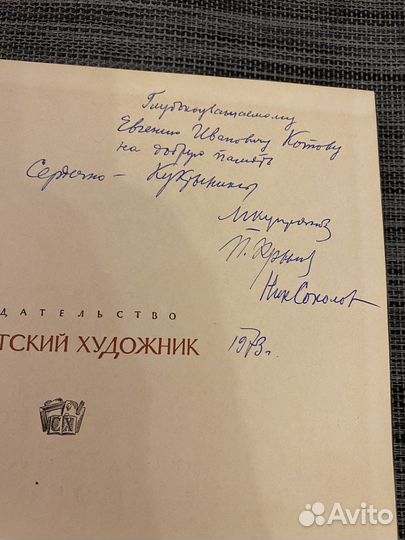 Глубокоуважаемому
Евгению Ивановичу Котову
на добрую память
Сердечно — Кукрыниксы
М Куприянов
П. Крылов
Ник Соколов
1973 г.
ДАТЕЛЬСТВО
ТСКИЙ ХУДОЖНИК
СХ
Avito